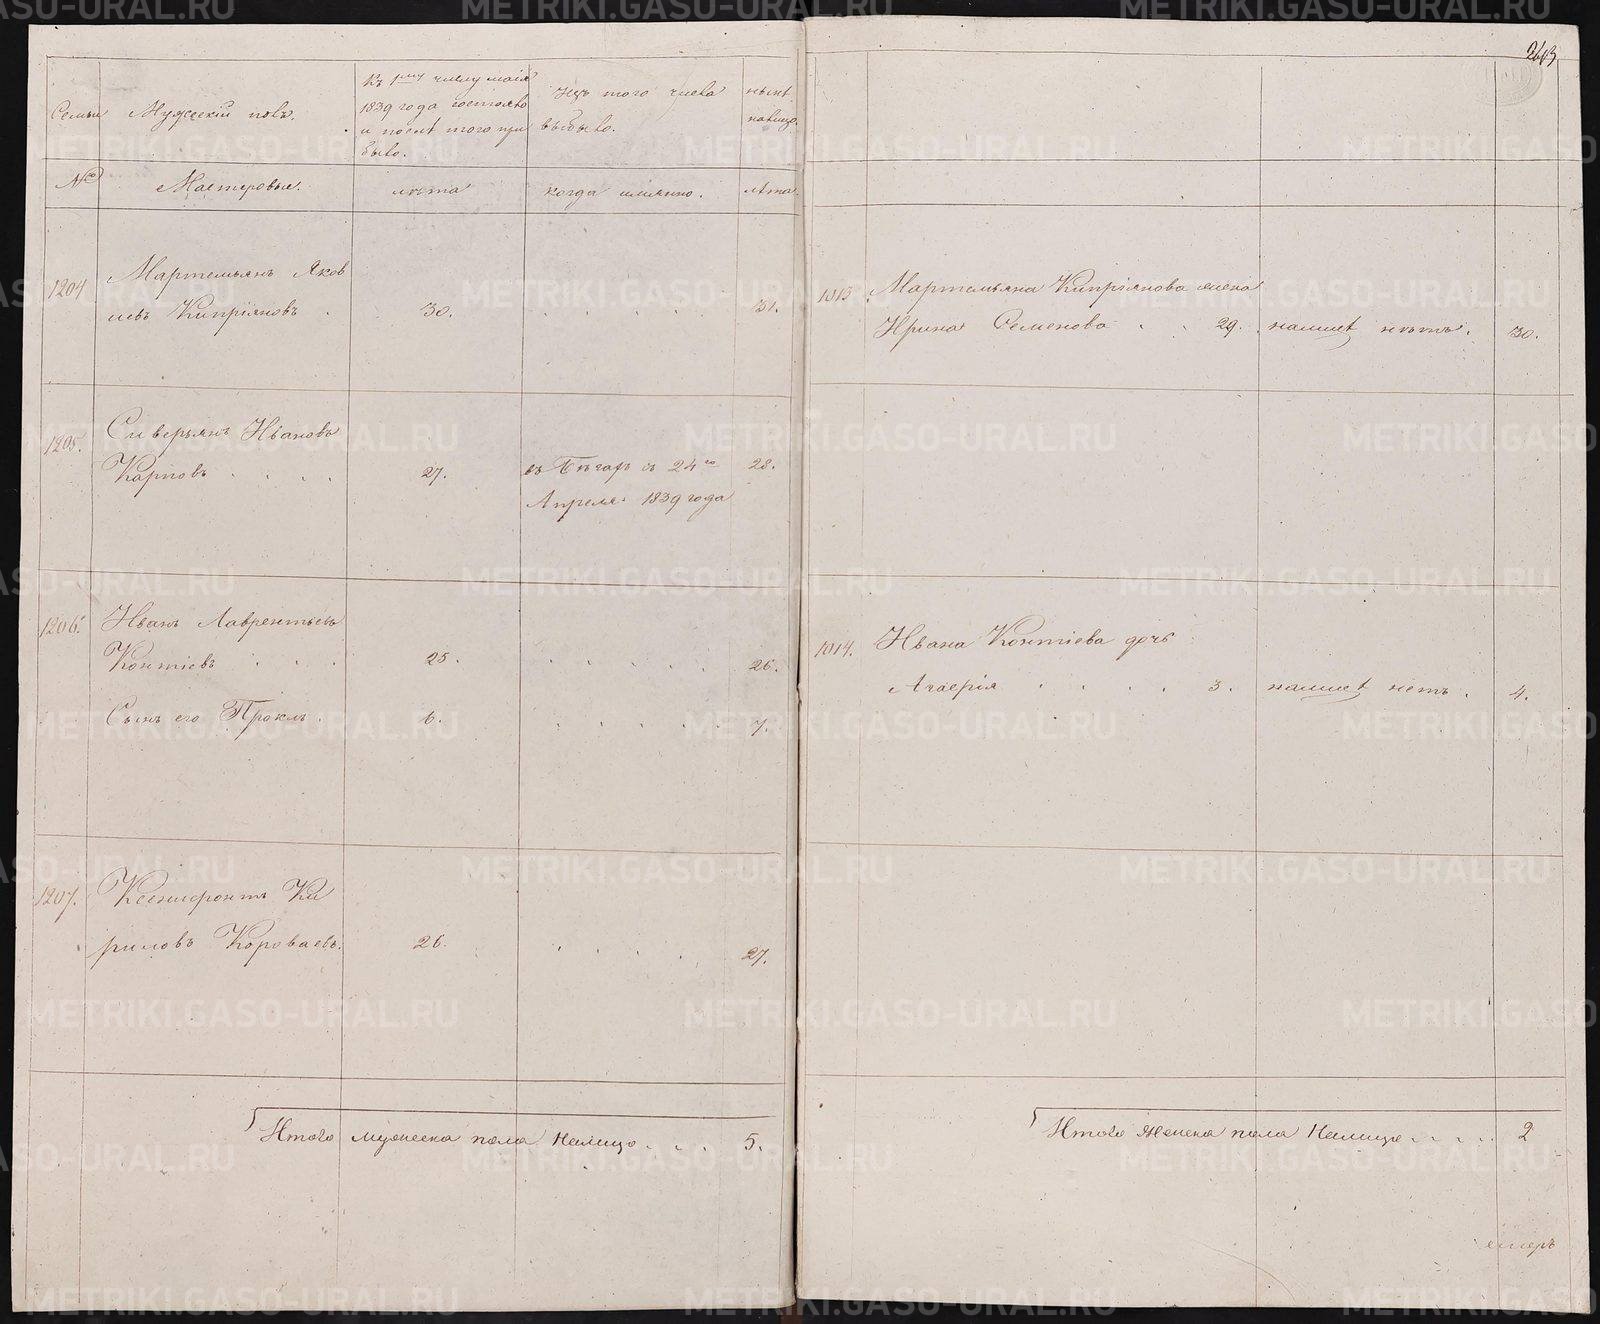 2603
Семьи
Мужескій полъ.
Къ 1му числу маія
1839 года состояло
и послѣ того при
было.
Изъ того числа
выбыло.
нынѣ
налицо.
№
Мастеровые.
лѣта
когда имянно.
лѣта.
1204
Мартемьянъ Яков
левъ Кипріяновъ . 30. . . . . . 31.
1205.
Сиверьянъ Ивановъ
Карповъ . . . . 27. въ бѣгахъ съ 24го 28.
Апреля 1839 года
1206.
Иванъ Лаврентьевъ
Контіевъ . . . 25. . . . . . 26.
Сынъ его Проклъ . 6. . . . . . 7.
1207.
Ксенифонтъ Ки
риловъ Короваевъ. 26. . . . . 27.
Итого мужеска пола налицо . . . 5.
1013 Мартемьяна Кипріянова жена
Ирина Семенова . . 29. налицѣ нѣтъ. 30.
1014. Ивана Контіева дочь
Аглерія . . . . 3. налицѣ нетъ. 4.
Итого женска пола налицо . . . . 2
METRIKI.GASO-URAL.RU